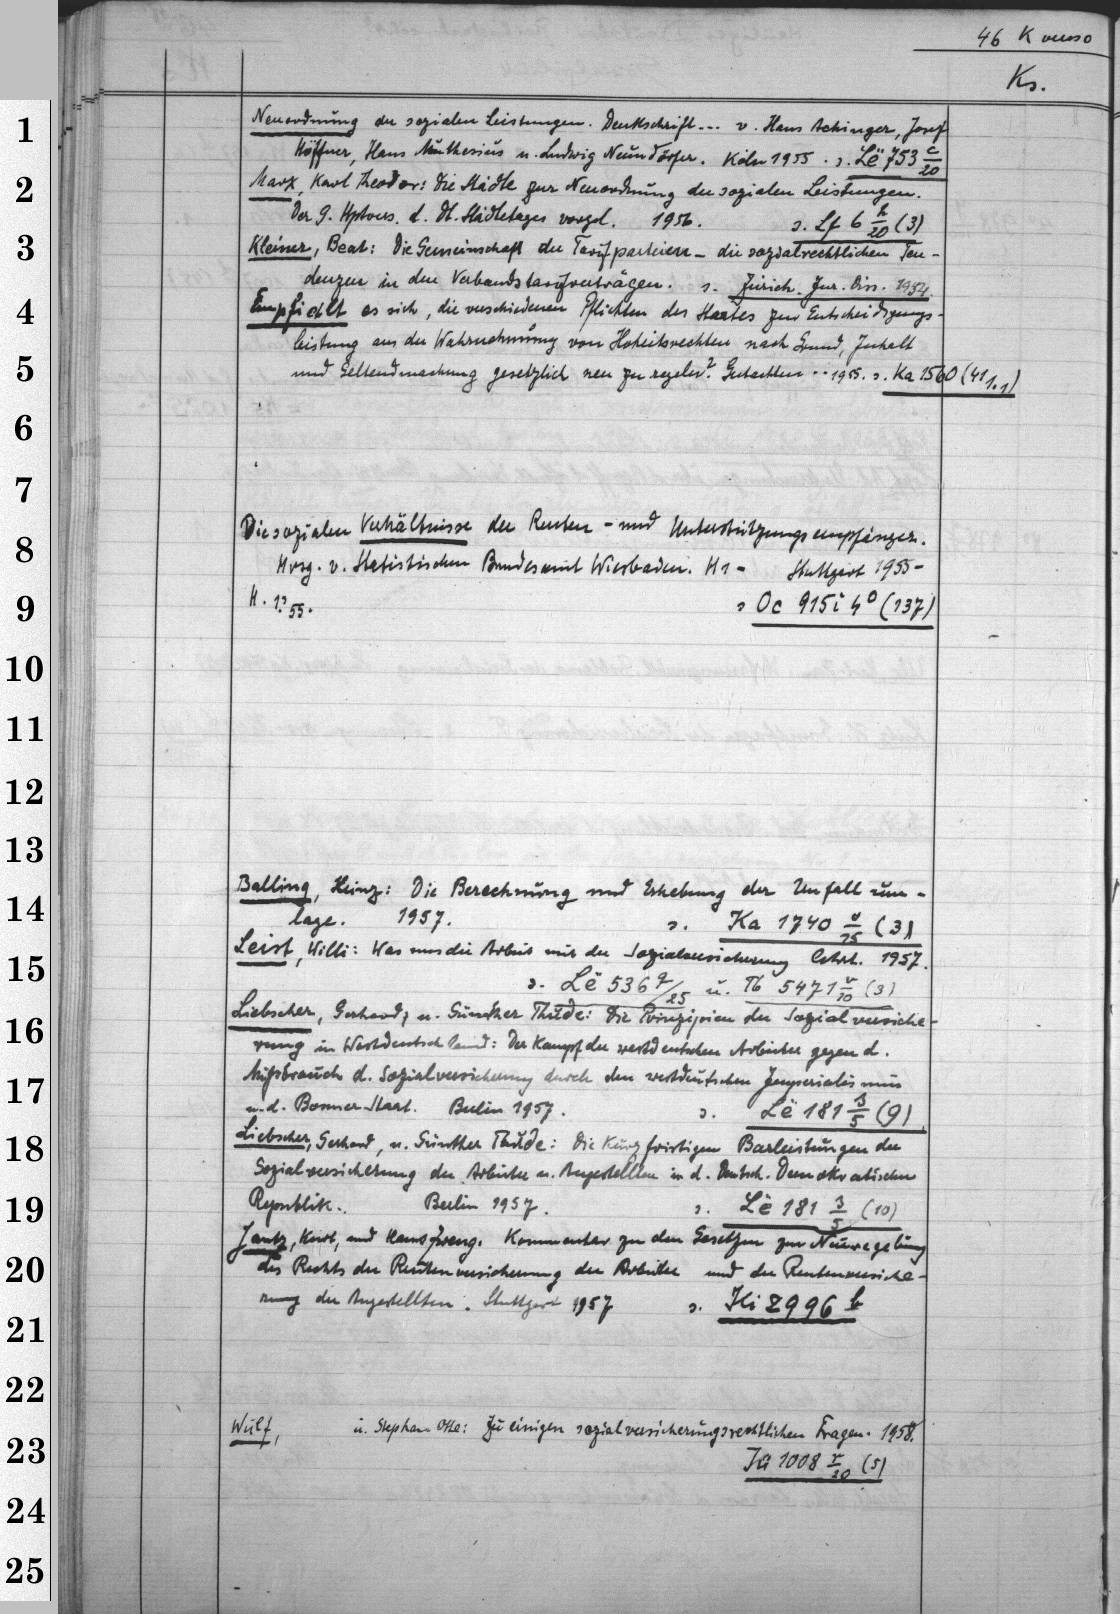 46 K verso
Ks.
1
Neuordnung der sozialen Leistungen. Denkschrift... v. Hans Achinger, Josef
Höffner, Hans Muthesius u. Ludwig Neundörfer. Köln 1955. s. Lë 753 c/20
2
Marx, Karl Theodor: Die Städte zur Neuordnung der sozialen Leistungen.
Der 9. Hptvers. d. Dt. Städtetages vorgel. 1956. s. Lf 6 h/20 (3)
3
Kleiner, Beat: Die Gemeinschaft der Tarifparteien – die sozialrechtlichen Ten-
denzen in den Verbandstarifverträgen. s. Zürich. Jur. Diss. 1954
4
Empfiehlt es sich, die verschiedenen Pflichten des Staates zur Entschädigungs-
leistung aus der Wahrnehmung von Hoheitsrechten nach Grund, Inhalt
5
und Geltendmachung gesetzlich neu zu regeln? Gutachten .. 1955. s. Ka 1560 (41 1.1)
6
7
Die sozialen Verhältnisse der Renten- und Unterstützungsempfänger.
8
Hrsg. v. Statistischen Bundesamt Wiesbaden. H 1 - Stuttgart 1955-
9
H. 1? 55. s Oc 915i 4° (137)
10
11
12
13
Balling, Heinz: Die Berechnung und Erhebung der Unfallum-
14
lage. 1957. s. Ka 1740 v/25 (3)
Leist, Willi: Was uns die Arbeit mit der Sozialversicherung lehrt. 1957.
15
s. Lë 536 q/25 u. Tb 5471 v/10 (3)
Liebscher, Gerhard, u. Günther Thude: Die Prinzipien der Sozialversiche-
16
rung in Westdeutschland: Der Kampf der westdeutschen Arbeiter gegen d.
17
Mißbrauch d. Sozialversicherung durch den westdeutschen Imperialismus
u. d. Bonner Staat. Berlin 1957. s. Lë 181 3/5 (9)
18
Liebscher, Gerhard, u. Günther Thude: Die kurzfristigen Barleistungen der
Sozialversicherung der Arbeiter u. Angestellten in d. Deutsch. Demokratischen
19
Republik. Berlin 1957. s. Lë 181 3/5 (10)
Jantz, Kurt, und Hans Zweng. Kommentar zu den Gesetzen zur Neuregelung
20
des Rechts der Rentenversicherung der Arbeiter und der Rentenversiche-
rung der Angestellten. Stuttgart 1957 s. Hi 2996 b
21
22
Wulf, u. Stephan Otte: Zu einigen sozialversicherungsrechtlichen Fragen. 1958.
23
Ja 1008 v/20 (5)
24
25